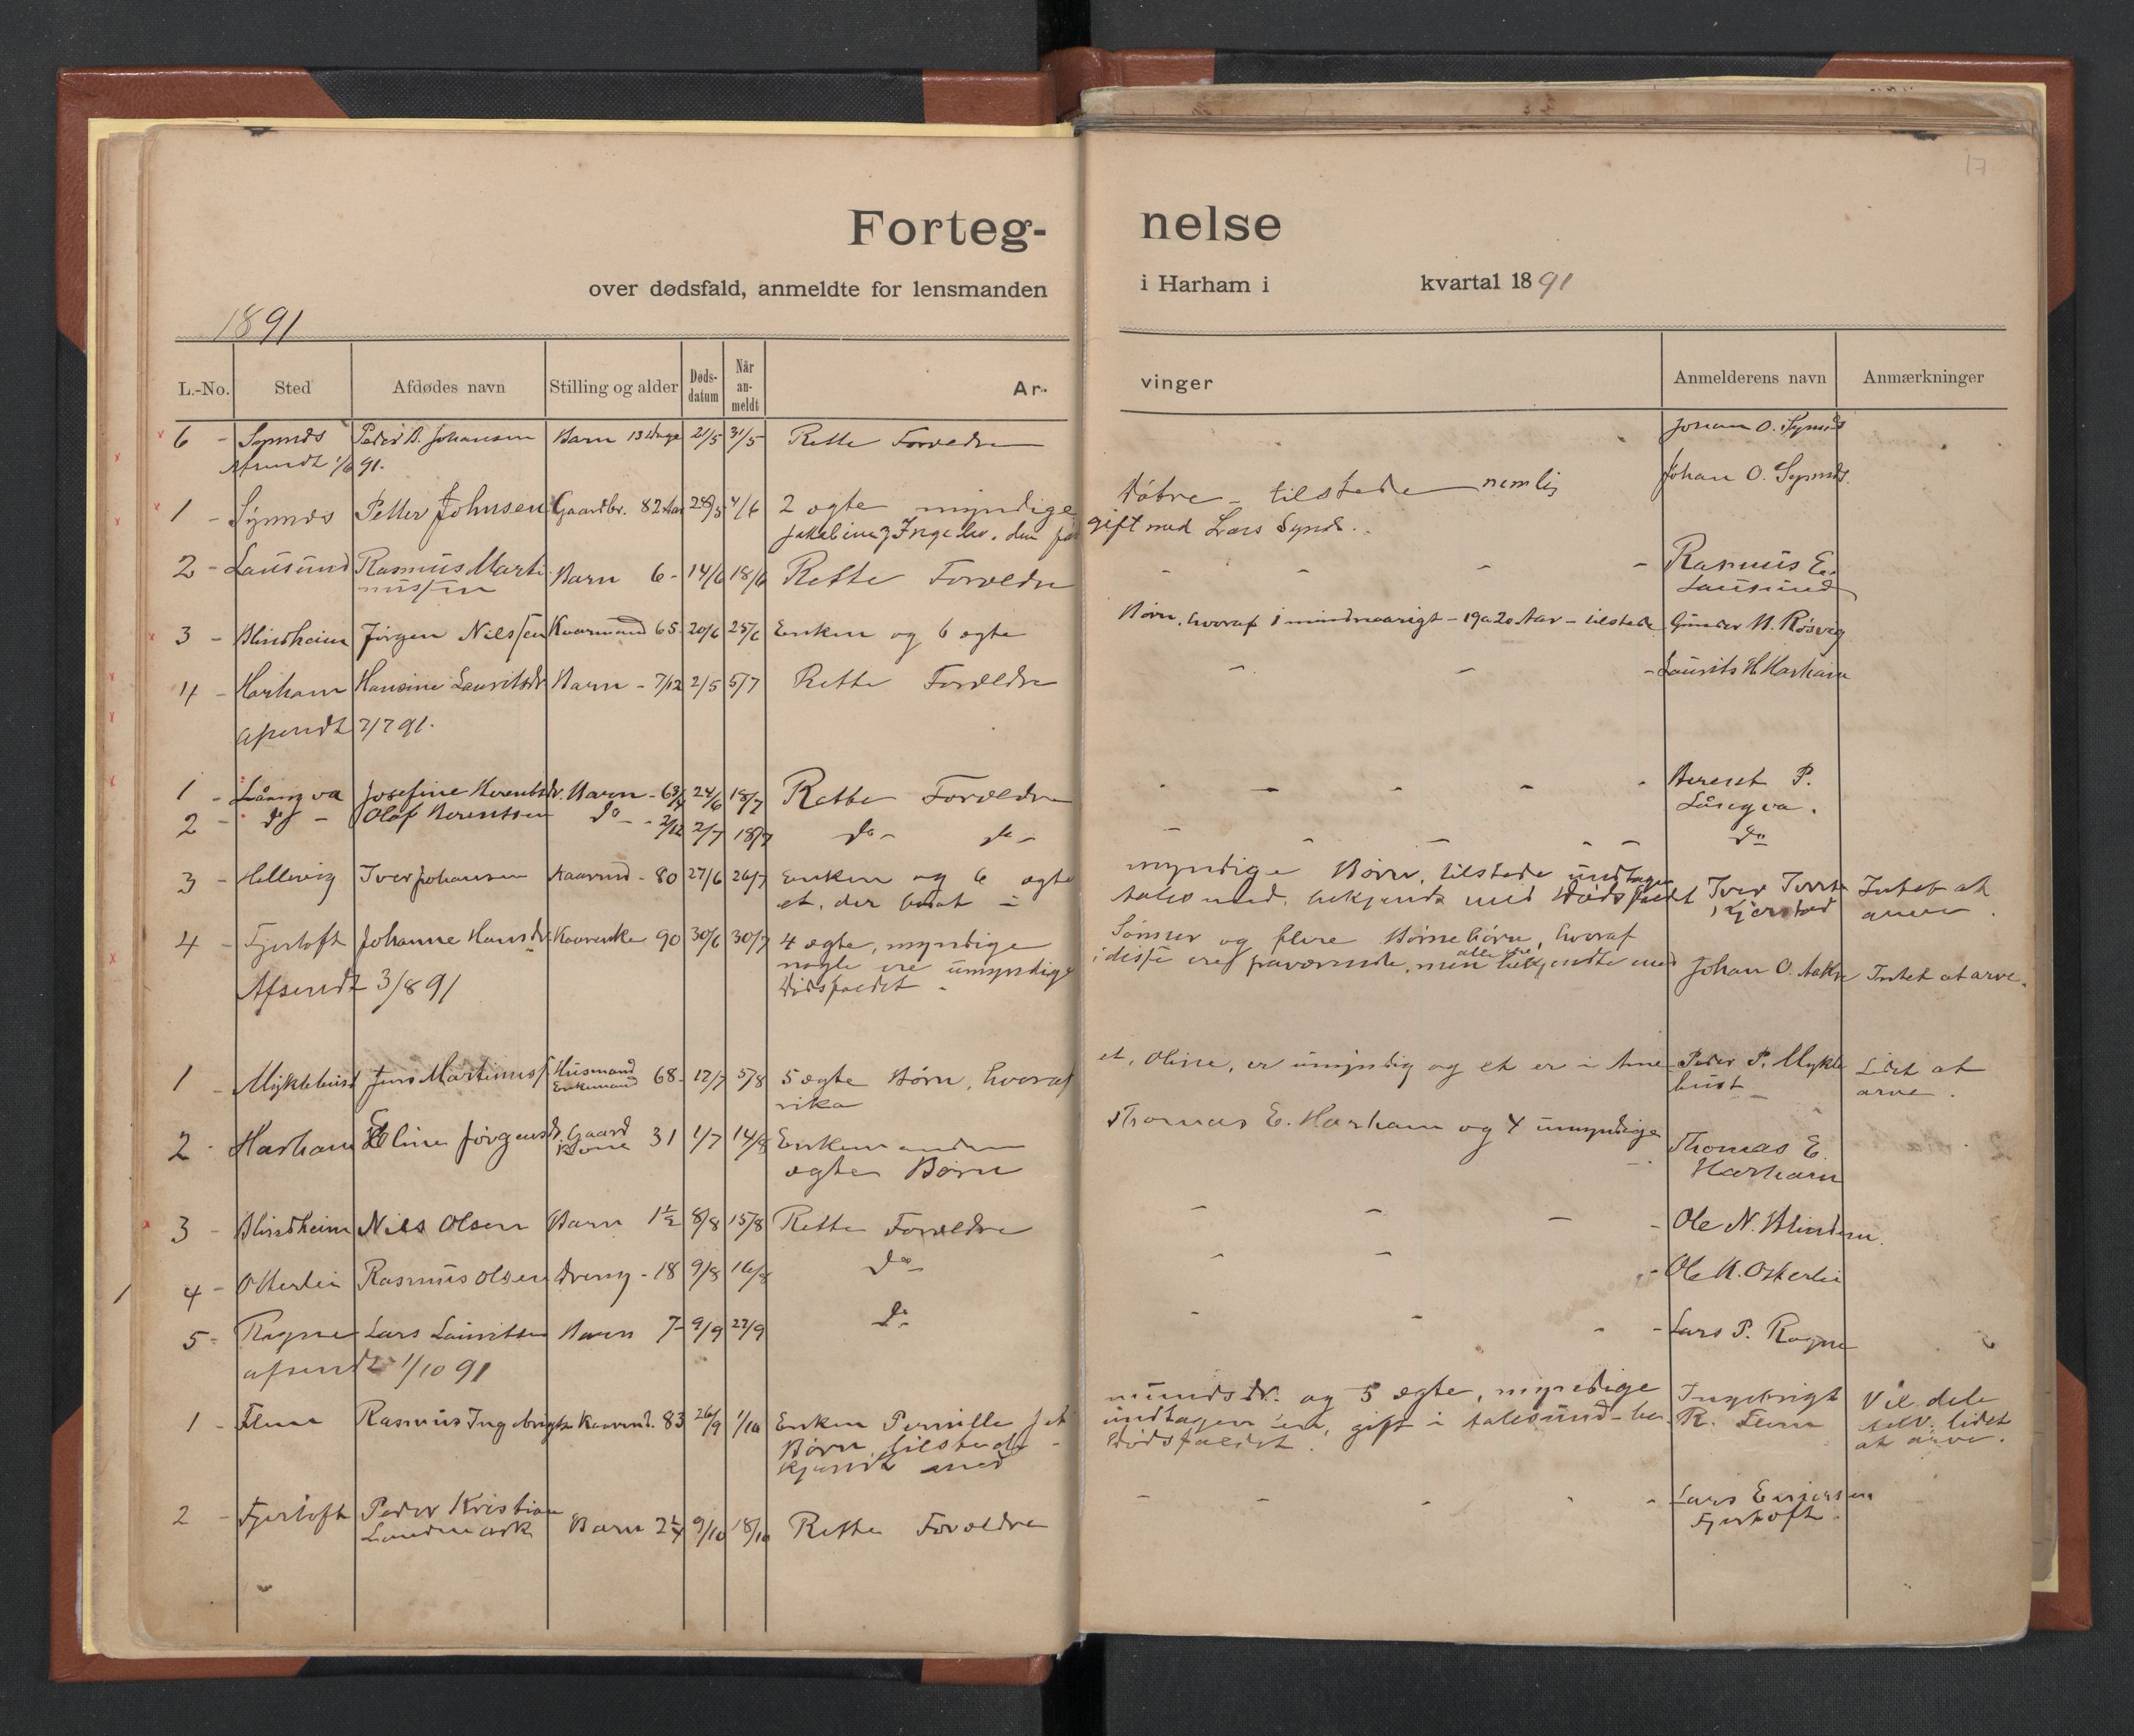 17
Forteg- nelse
over dødsfald, anmeldte for lensmanden i Harham i kvartal 1891
1891
L.-No. Sted Afdødes navn Stilling og alder Døds-datum Når an-meldt Ar- vinger Anmelderens navn Anmærkninger
6 - Synnes Peder B. Johansen Barn 13 Dage 21/5 31/5 Rette Forældre Johan O. Synnes
Afsendt 1/6 91.
1 - Synnes Petter Johnsen Gaardbr. 82 Aar 28/5 4/6 2 ægte myndige Døtre - tilstede nemlig Johan O. Synnes.
gift med Lars Synes.
2 - Lausund Rasmus Marti Barn 6 - 14/6 18/6 Rette Forældre - - - - Rasmus E.
nussen Lausund
3 - Blindheim Jørgen Nilssen Kaarmand 65 20/6 25/6 Enken og 6 ægte Børn, hvoraf 1 mindreaarigt - 19 a 20 Aar - tilstede Gunder N. Røsvig
4 - Harham Hansine Lauritsdr Barn - 7/12 2/5 5/7 Rette Forældre - - - Laurits H. Harham
Afsendt 2/7 91.
1 - Långva Josefine Berentsdr. Barn - 6 3/4 24/6 18/7 Rette Forældre - - - - - Berent P.
Långva.
2 - do - Olaf Berentsen do - - 2/12 2/7 18/7 do - do - - - - - do
3 - Hellevig Iver Johansen Kaarmd - 80 27/6 26/7 Enken og 6 ægte myndige Børn, tilstede undtagen
et, der boat i Aalesund, bekjendt med Dødsfaldet Iver Iverss Intet at
Kjerstad arve.
4 - Fjertoft Johanne Hansdr. Kaarenke 90 30/6 30/7 4 ægte, myndige Sønner og flere Børnebørn, hvoraf
nogle ere umyndige, i disse ere fraværende, men alle ere bekjendte med Johan O. Aakre Intet at arve.
Dødsfaldet.
Afsendt 3/8 91
1 - Myklebust Jens Martinuss Husmand Enkemand 68 - 12/7 5/8 5 ægte Børn, hvoraf et, Oline, er umyndig og et er i Ame- Peder P. Mykle Lidt at
rika bust arve.
2 - Harham Eline Jørgensdr. Gaard Kone 31 1/7 14/8 Enkemanden Thomas E. Harham og 4 umyndige Thomas E.
ægte Børn Harham
3 - Blindheim Nils Olsen Barn 1 1/2 8/8 15/8 Rette Forældre - - - - Ole N. Blindem.
4 - Otterlei Rasmus Olsen Dreng - 18 9/8 16/8 do - - - Ole K. Otterlei
5 - Rogne Lars Lauritsen Barn 7 - 9/9 22/9 do - - - - Lars P. Rogne
afsendt 1/10 91
1 - Flem Rasmus Ingebrigts Kaarmd. 83 26/9 1/10 Enken Pernille og 5 ægte, myndige Ingebrigt Vil dele
Børn, tilstede - undtagen en, gift i Aalesund - be- R. Flem selv. lidet
kjendt med Dødsfaldet. at arve.
2 - Fjertoft Peder Kristian Barn 2 1/4 9/10 18/10 Rette Forældre - - - - - Lars Einersen
Landmark Fjertoft.